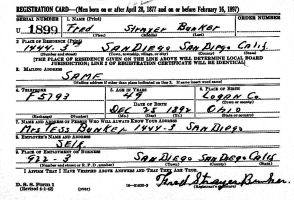 REGISTRATION CARD—(Men born on or after April 28, 1877 and on or before February 16, 1897)
SERIAL NUMBER 1. NAME (Print) ORDER NUMBER
U 1899 Fred Strayer Bunker
(First) (Middle) (Last)
2. PLACE OF RESIDENCE (Print)
1444-3 SAN DIEGO SAN DIEGO Calif
(Number and street) (Town, township, village, or city) (County) (State)
[THE PLACE OF RESIDENCE GIVEN ON THE LINE ABOVE WILL DETERMINE LOCAL BOARD
JURISDICTION; LINE 2 OF REGISTRATION CERTIFICATE WILL BE IDENTICAL]
3. MAILING ADDRESS
SAME
[Mailing address if other than place indicated on line 2. If same insert word same]
4. TELEPHONE 5. AGE IN YEARS 6. PLACE OF BIRTH
F5793 49 LOGAN Co
DATE OF BIRTH (Town or county)
DEC 25 1892 OHIO
(Mo.) (Day) (Yr.) (State or country)
7. NAME AND ADDRESS OF PERSON WHO WILL ALWAYS KNOW YOUR ADDRESS
MRS TESS BUNKER 1444-3 SAN DIEGO
8. EMPLOYER'S NAME AND ADDRESS
SELF
9. PLACE OF EMPLOYMENT OR BUSINESS
922-3 SAN DIEGO SAN DIEGO Calif
(Number and street or R. F. D. number) (Town) (County) (State)
I AFFIRM THAT I HAVE VERIFIED ABOVE ANSWERS AND THAT THEY ARE TRUE.
D. S. S. Form 1
(Revised 4-1-42) (over)
Fred Strayer Bunker
(Registrant's signature)